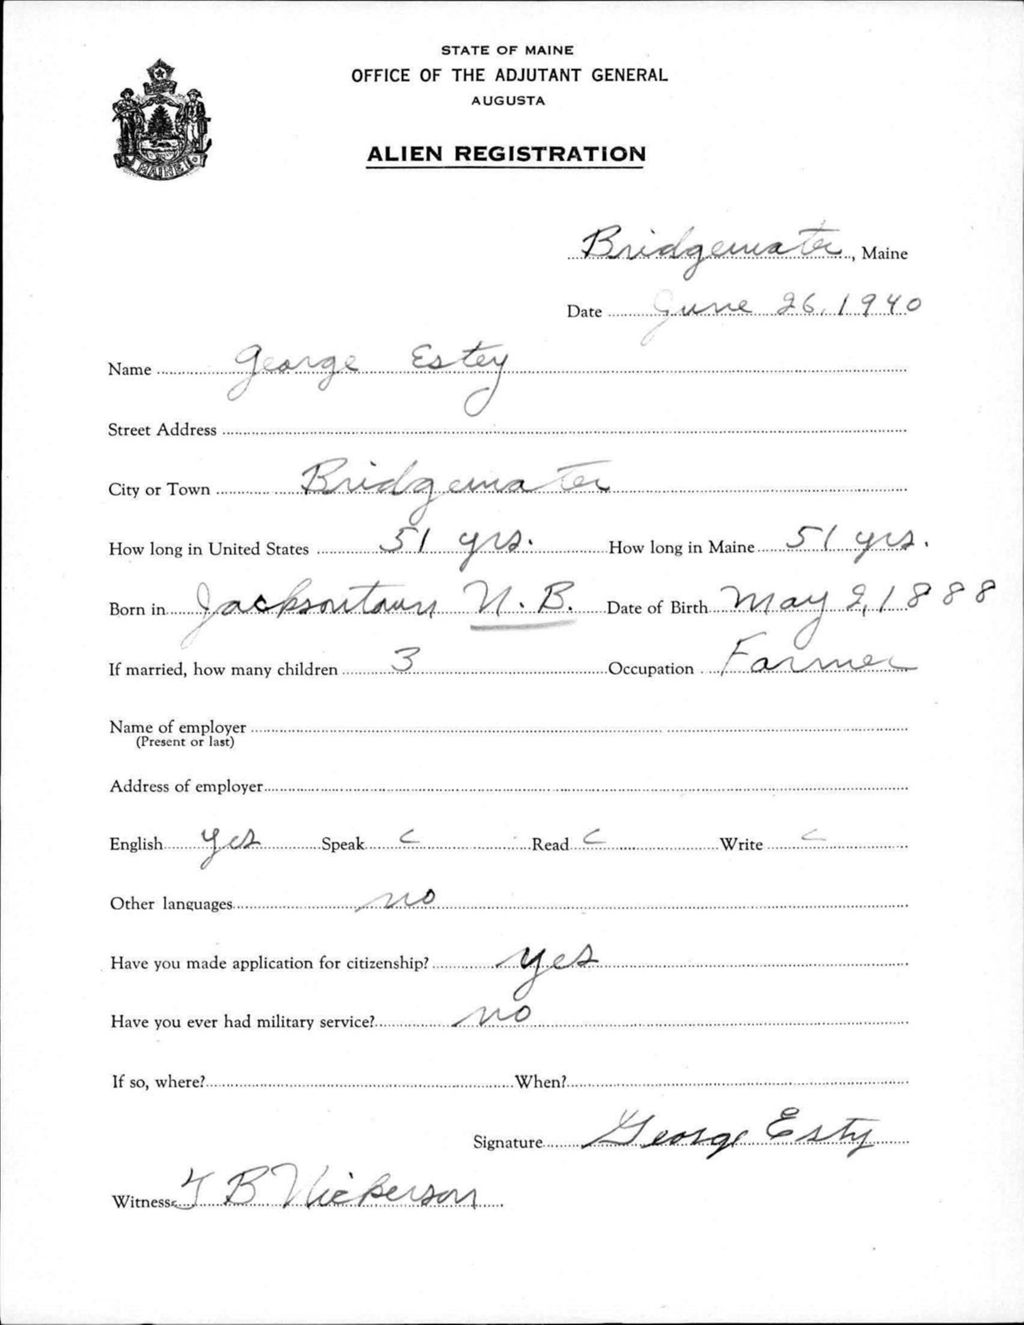 STATE OF MAINE
OFFICE OF THE ADJUTANT GENERAL
AUGUSTA
ALIEN REGISTRATION
MAINE
Bridgewater, Maine
Date June 26, 1940
Name George Estey
Street Address
City or Town Bridgewater
How long in United States 51 yrs. How long in Maine 51 yrs.
Born in Jacksontown N.B. Date of Birth May 2, 1888
If married, how many children 3 Occupation Farmer
Name of employer
(Present or last)
Address of employer
English yes Speak Read Write
Other languages no
Have you made application for citizenship? yes
Have you ever had military service? no
If so, where? When?
Signature George Esty
Witness B Nickerson